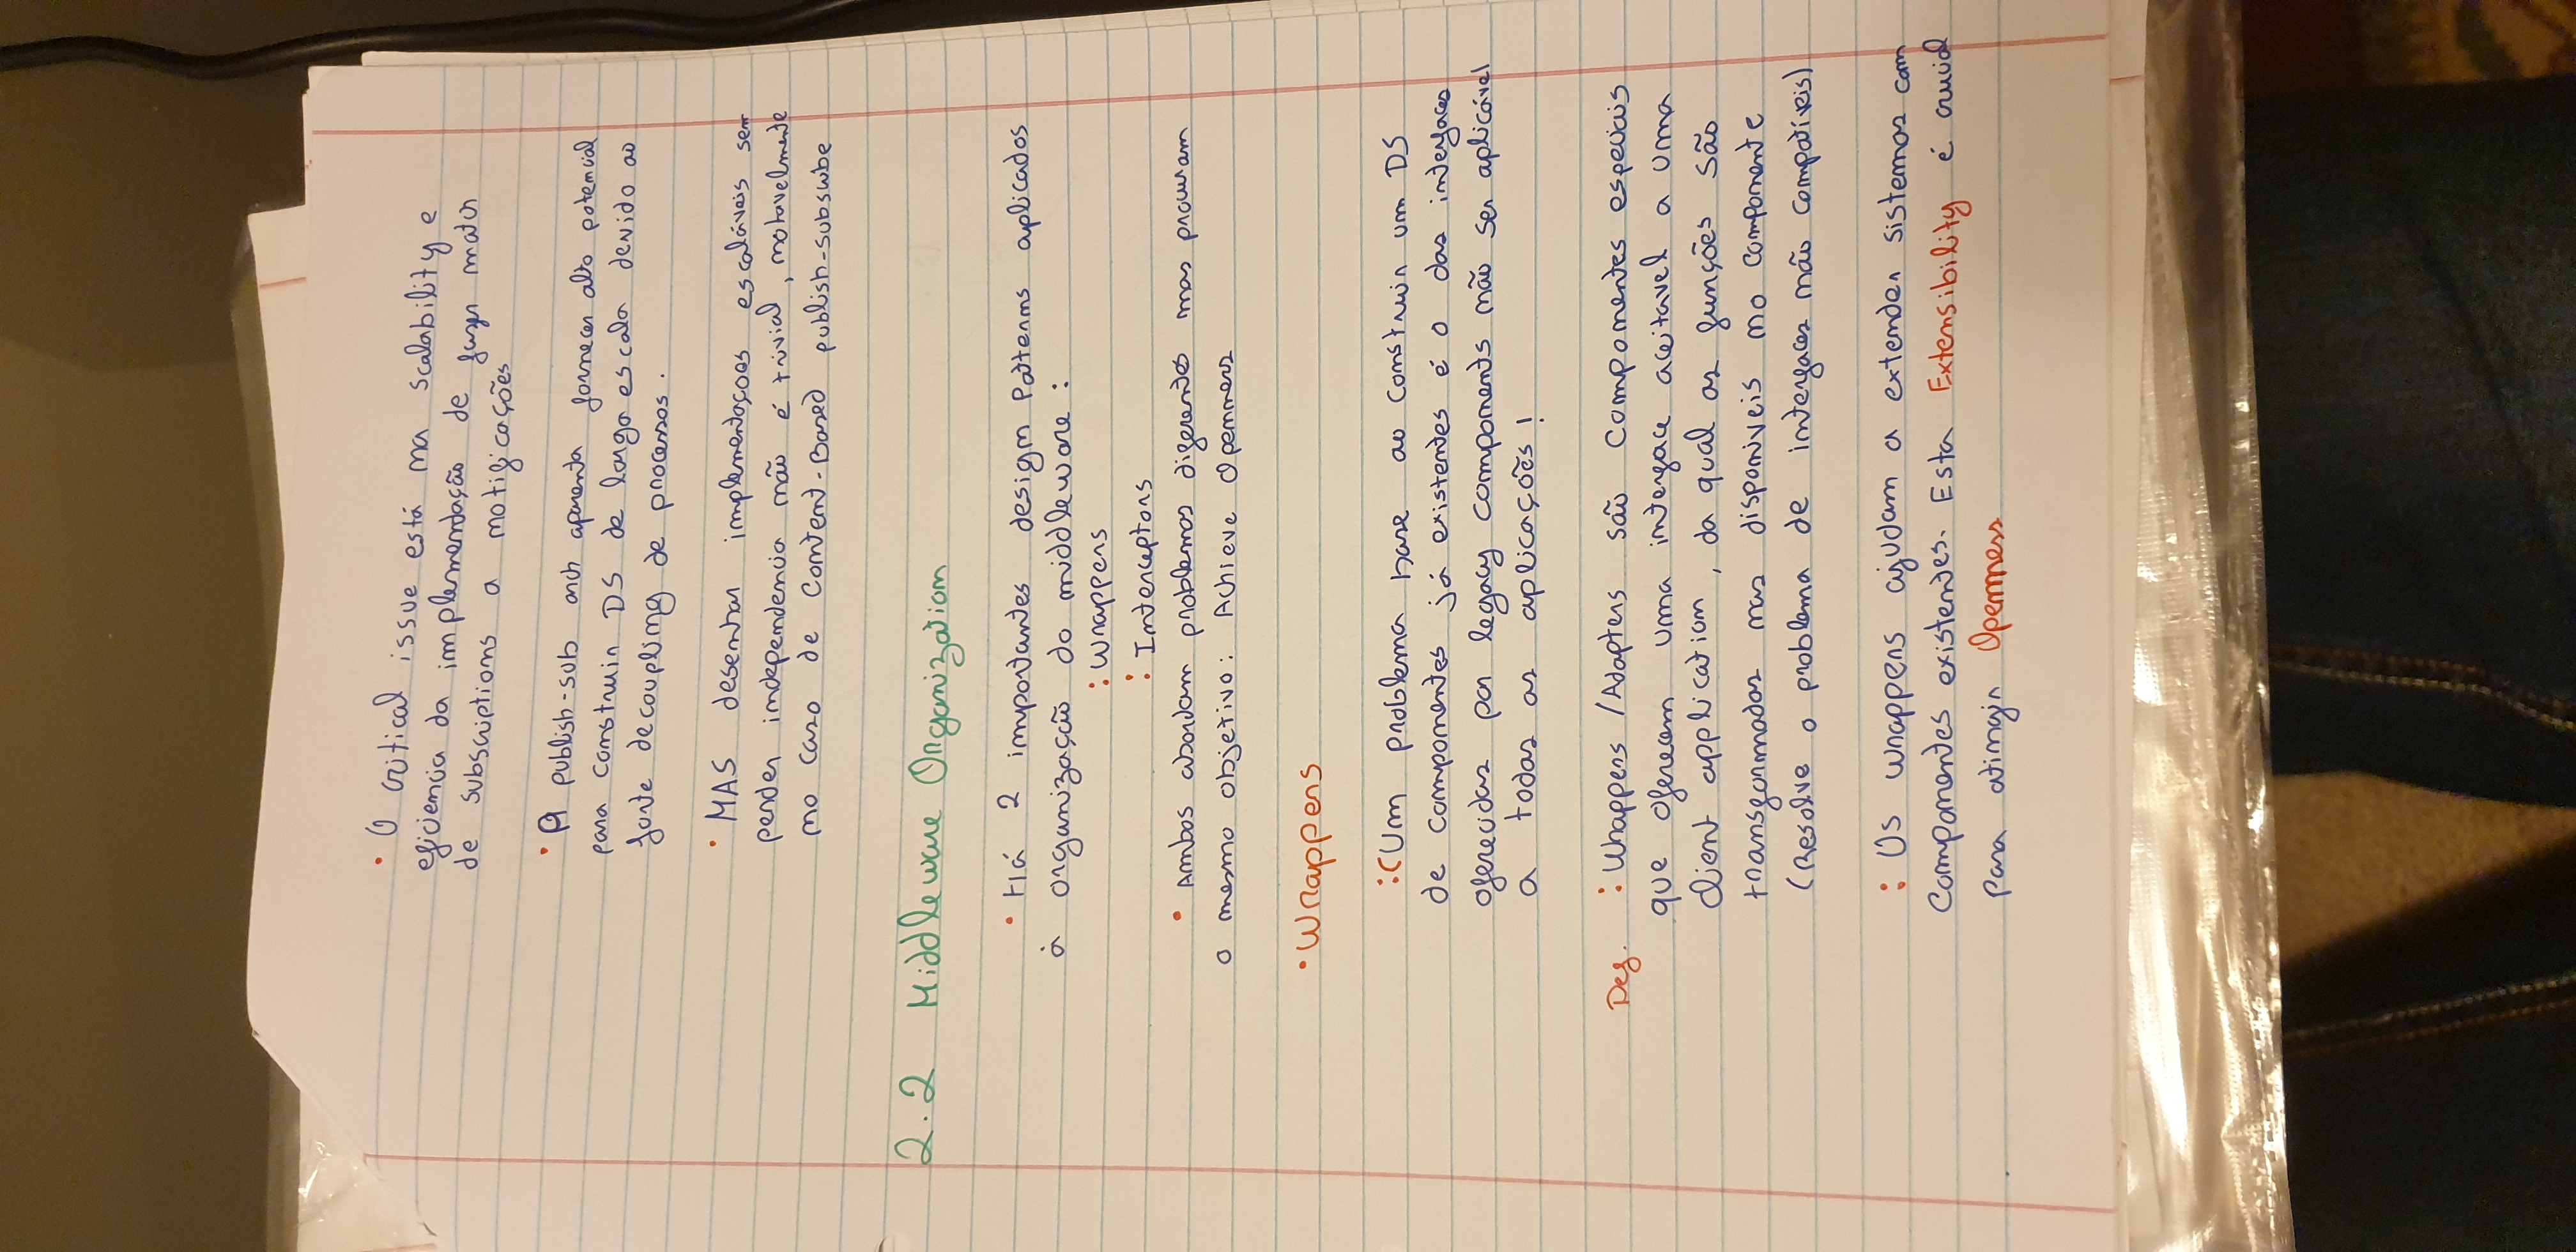 • O critical issue está na scalability e
eficiencia da implementação de fazer match
de subscriptions a notificações
• A publish-sub arch aparenta fornecer alto potencial
para construir DS de larga escala devido ao
forte decoupling de processos.
• MAS desenhar implementaçoes escaláveis sem
perder independencia não é trivial, notavelmente
no caso de Content-Based publish-subscribe
2.2 Middleware Organization
• Há 2 importantes design Patterns aplicados
à organização do middleware:
: Wrappers
: Interceptors
• Ambos abordam problemas diferentes mas procuram
o mesmo objetivo: Achieve Openness
• Wrappers
:(Um problema base ao construir um DS
de componentes já existentes é o das interfaces
oferecidas por legacy components não ser aplicável
a todas as aplicações!
Def. : Wrappers /Adapters são componentes especiais
que oferecem uma interface aceitavel a uma
client application, da qual as funções são
transformadas nas disponiveis no componente
(Resolve o problema de interfaces não compatíveis)
: Os wrappers ajudam a extender sistemas com
componentes existentes. Esta Extensibility é crucial
para atingir Openness